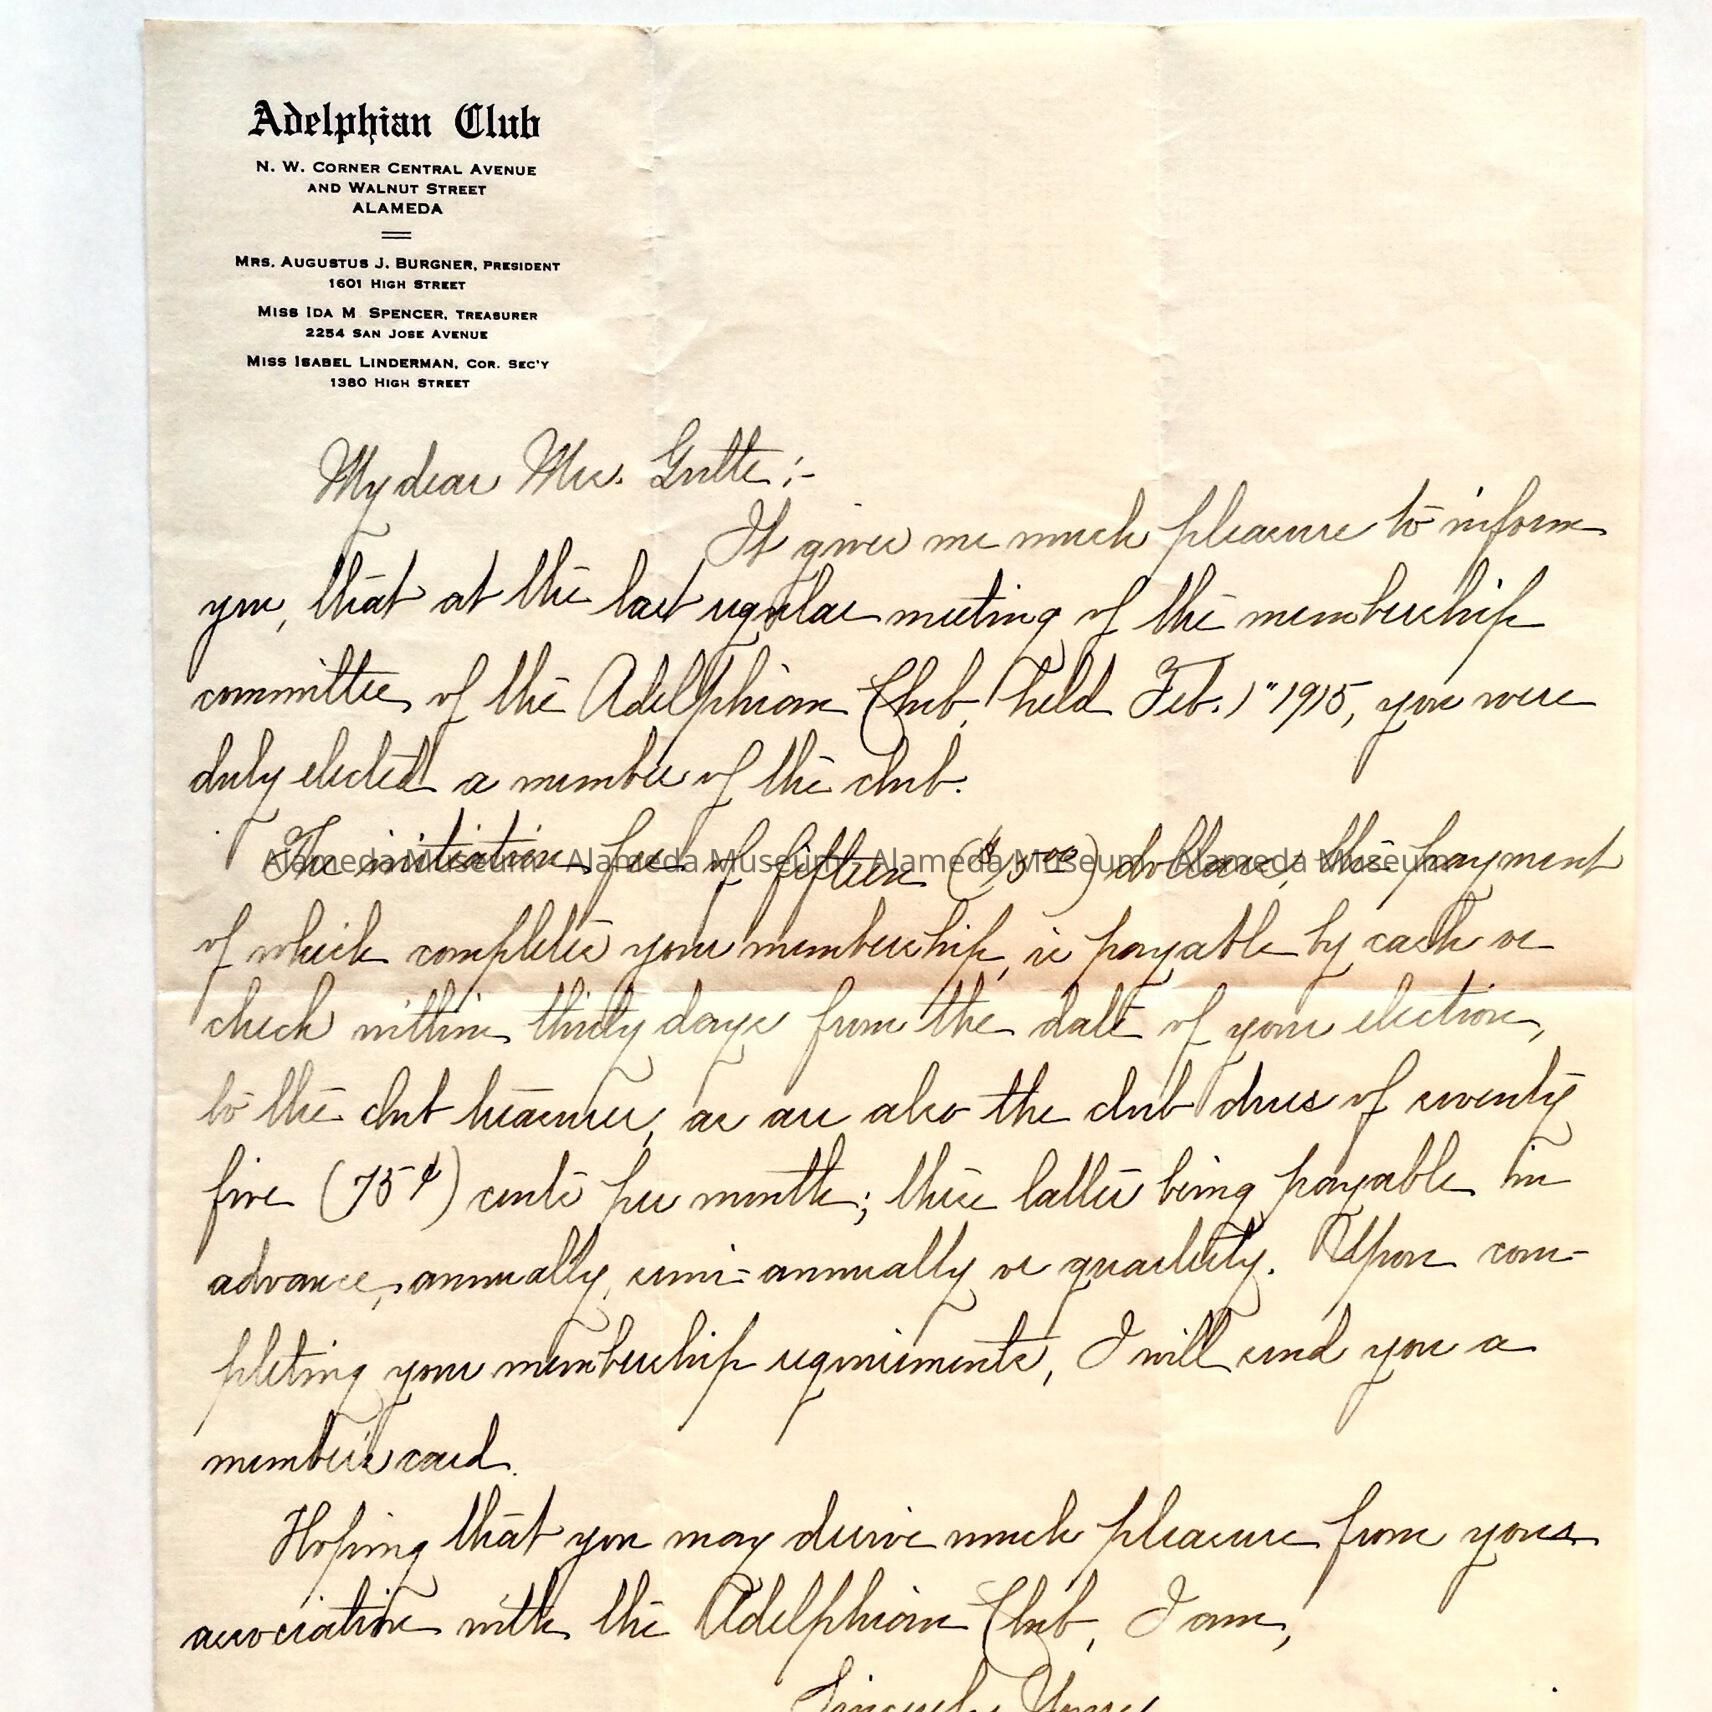 Adelphian Club
N. W. CORNER CENTRAL AVENUE
AND WALNUT STREET
ALAMEDA
MRS. AUGUSTUS J. BURGNER, PRESIDENT
1601 HIGH STREET
MISS IDA M SPENCER, TREASURER
2254 SAN JOSE AVENUE
MISS ISABEL LINDERMAN, COR. SEC'Y
1380 HIGH STREET
My dear Mrs. Gutte:-
It gives me much pleasure to inform
you, that at the last regular meeting of the membership
committee of the Adelphian Club, held Feb. 1" 1915, you were
duly elected a member of the club.
The initiation fee of fifteen ($15 00) dollars, the payment
of which completes your membership, is payable by cash or
check within thirty days from the date of your election,
to the club treasurer, as are also the club dues of seventy
five (75¢) cents per month; these latter being payable in
advance, annually, semi-annually or quarterly. Upon com-
pleting your membership requirements, I will send you a
member's card.
Hoping that you may derive much pleasure from your
association with the Adelphian Club, I am,
Sincerely Yours
Alameda Museum - Alameda Museum - Alameda Museum - Alameda Museum